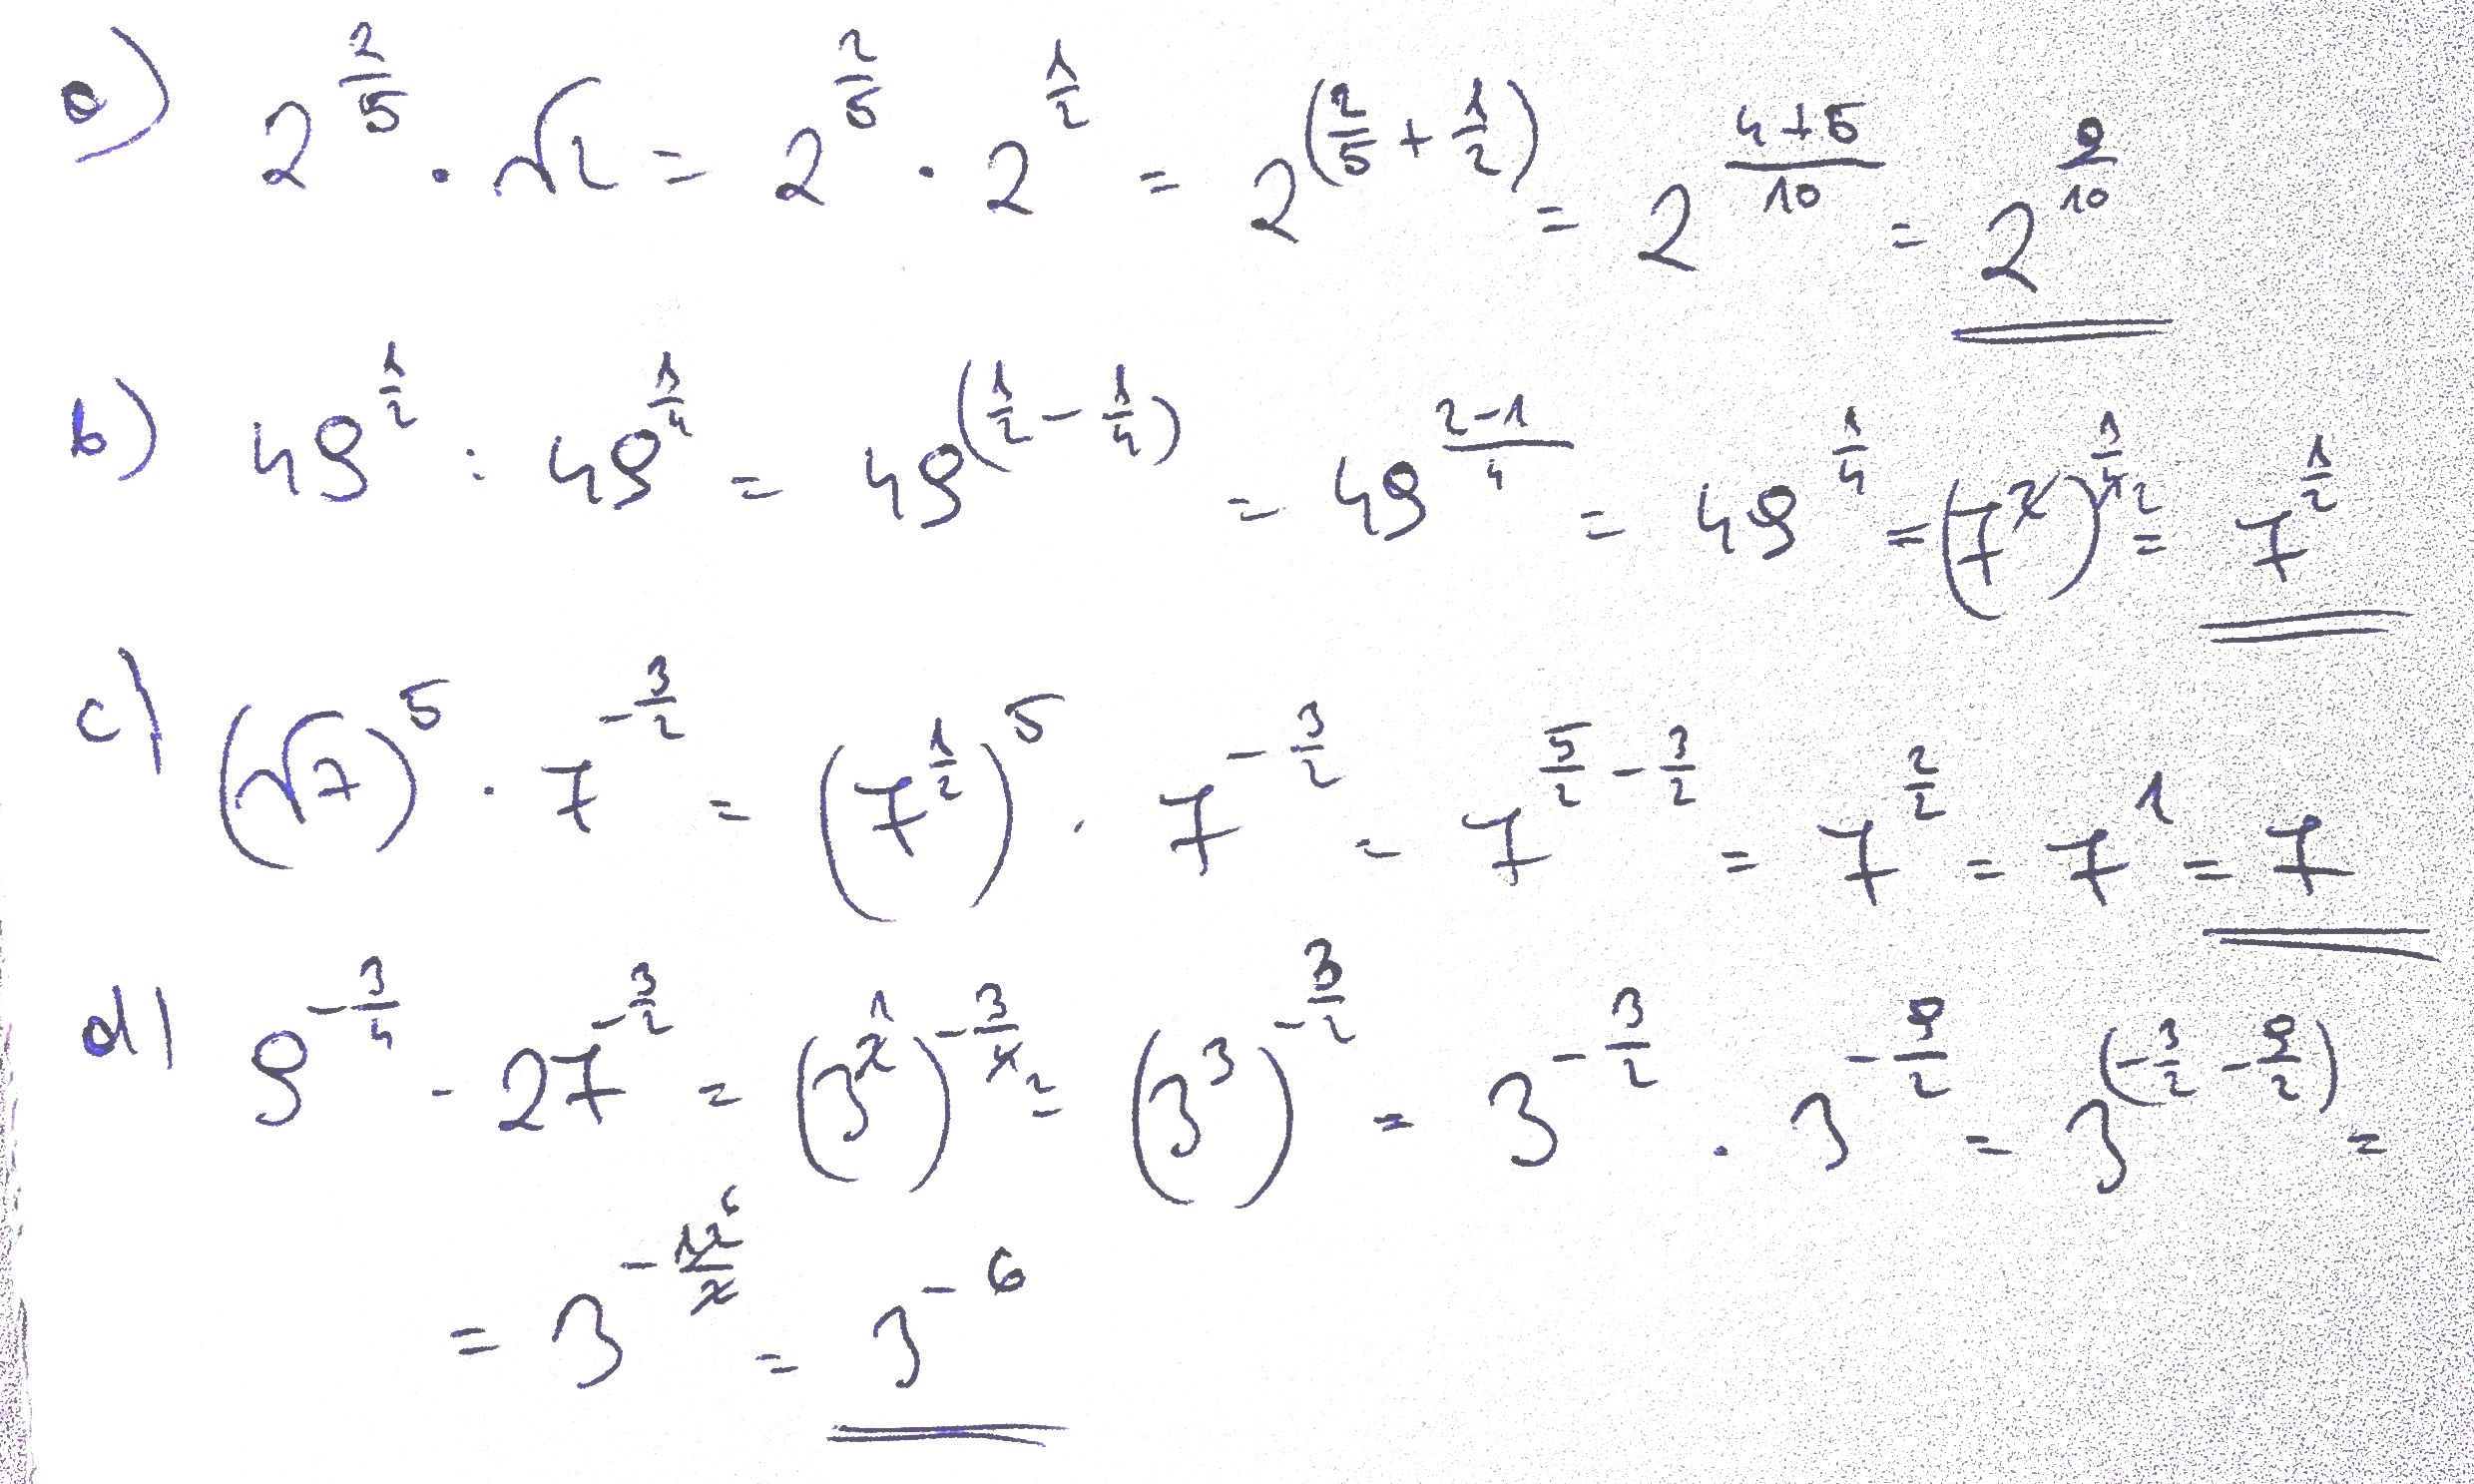 a) 2^(2/5) · √2 = 2^(2/5) · 2^(1/2) = 2^(2/5 + 1/2) = 2^((4+5)/10) = 2^(9/10)
b) 49^(1/2) : 49^(1/4) = 49^(1/2 - 1/4) = 49^((2-1)/4) = 49^(1/4) = (7^2)^(1/4) 2 = 7^(1/2)
c) (√7)^5 · 7^(-3/2) = (7^(1/2))^5 · 7^(-3/2) = 7^(5/2 - 3/2) = 7^(2/2) = 7^1 = 7
d) 9^(-3/4) - 27^(-3/2) = (3^2 1)^(-3/4) 2 = (3^3)^(-3/2) = 3^(-3/2) · 3^(-9/2) = 3^(-3/2 - 9/2) =
= 3^(-12/2) 6 = 3^(-6)